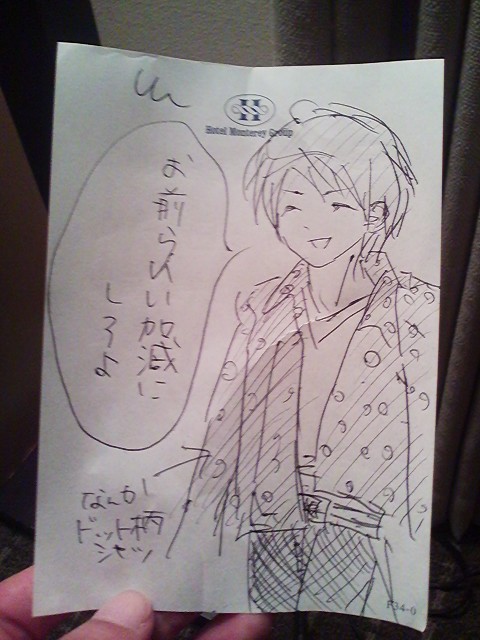 Hotel Monterey Group
お前らいい加減に
しろよ
なんか
ドット柄
シャツ
F34-0